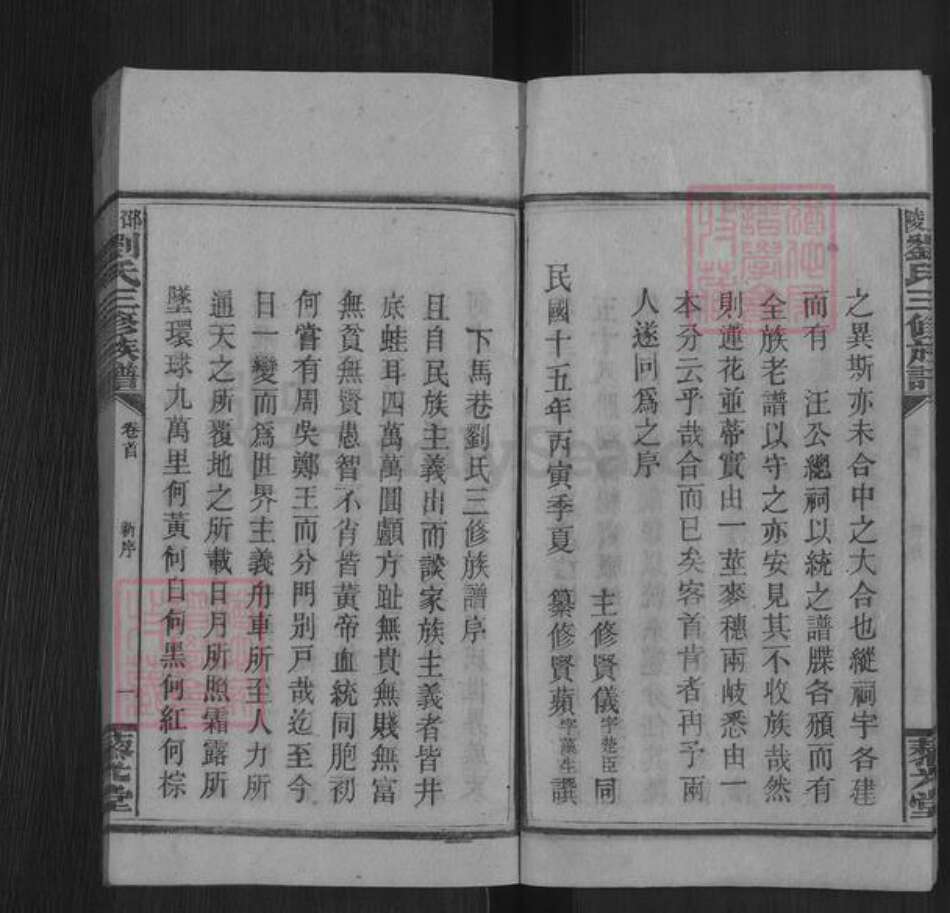 陵劉氏三修族譜
之異斯亦未合中之大合也縱祠宇各建
而有　汪公總祠以統之譜牒各頒而有
全族老譜以守之亦安見其不收族哉然
則蓮花並蒂實由一莖麥穗兩岐悉由一
本分云乎哉合而已矣客首肯者再予兩
人遂同爲之序
主修賢儀字楚臣同
民國十五年丙寅季夏　纂修賢蘋字藻生譔
下馬巷劉氏三修族譜序
且自民族主義出而談家族主義者皆井
底蛙耳四萬萬圓顱方趾無貴無賤無富
無貧無賢愚智不肖皆黃帝血統同胞初
何嘗有周吳鄭王而分門別戶哉迄至今
日一變而爲世界主義舟車所至人力所
通天之所覆地之所載日月所照霜露所
墜環球九萬里何黃何白何黑何紅何棕
邵劉氏三修族譜
卷首
新序
一
堂
FamilySearch